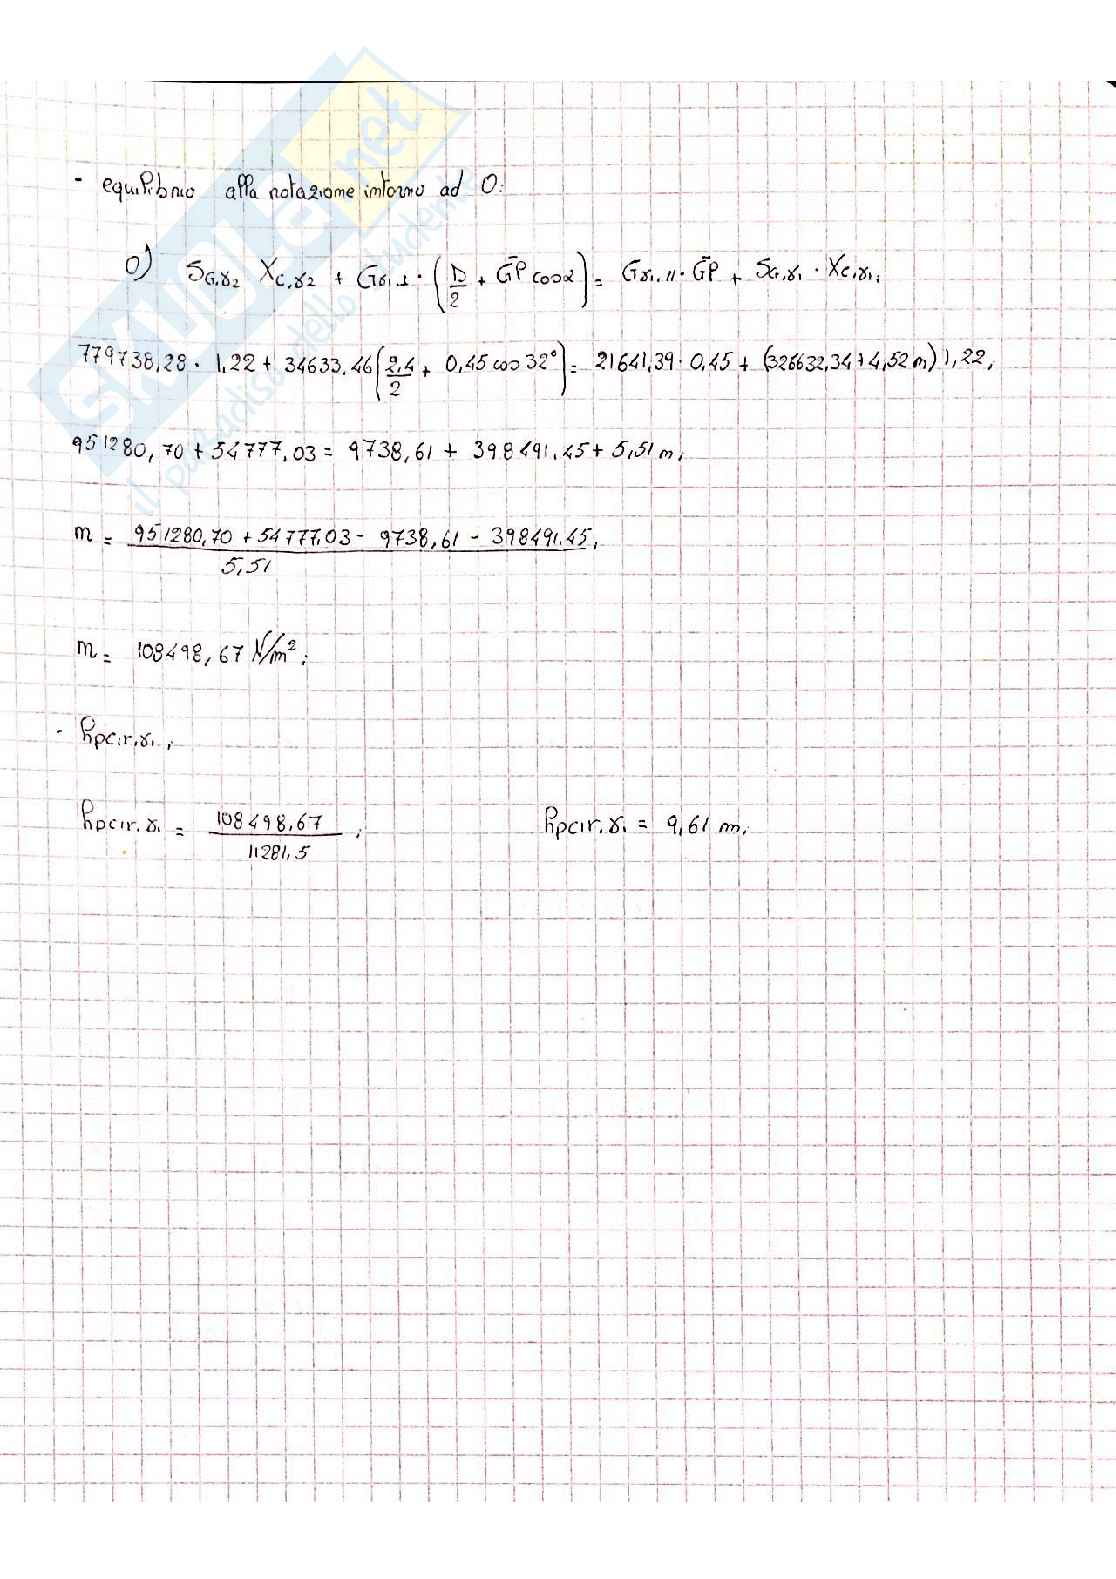 - equilibrio alla rotazione intorno ad O:
O) SG,γ2 XC,γ2 + Gγ1,⊥ · (D/2 + GP cosα) = Gγ1,// · GP + SG,γ1 · XC,γ1;
779738,28 · 1,22 + 34633,46 (2,4/2 + 0,45 cos 32°) = 21641,39 · 0,45 + (326632,34 + 4,52 m) 1,22;
951280,70 + 54777,03 = 9738,61 + 398491,45 + 5,51 m;
m = 951280,70 + 54777,03 - 9738,61 - 398491,45 / 5,51;
m = 108498,67 N/m²;
- hpcir,γ1;
hpcir,γ1 = 108498,67 / 11281,5 ; hpcir,γ1 = 9,61 m;
SKUOLA.net
il paradiso dello studente